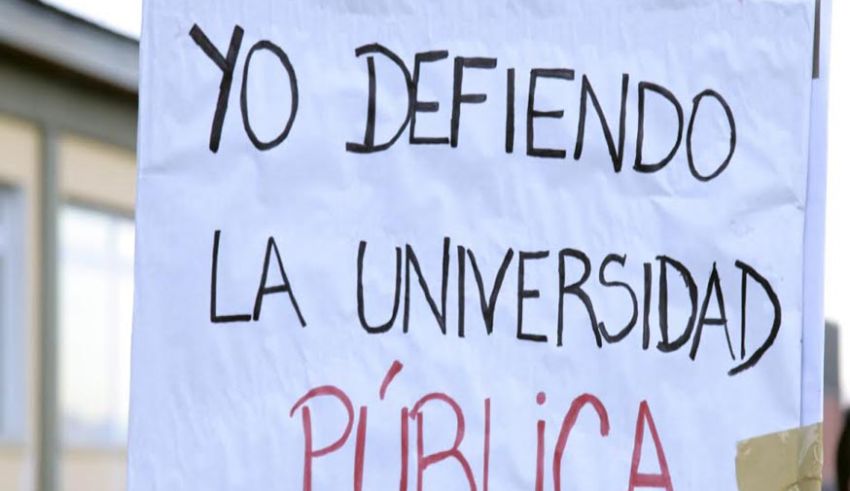 YO DEFIENDO
LA UNIVERSIDAD
PÚBLiCA